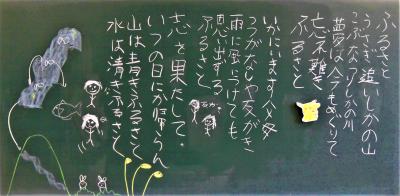 ふるさと
うさぎ追いしかの山
こぶなつりしかの川
夢は今もめぐりて
忘れ難き
ふるさと
いかにいます父母
つつがなしや友がき
雨に風につけても
思い出ずる
ふるさと
志を果たして
いつの日にか帰らん
山は青きふるさと
水は清きふるさと